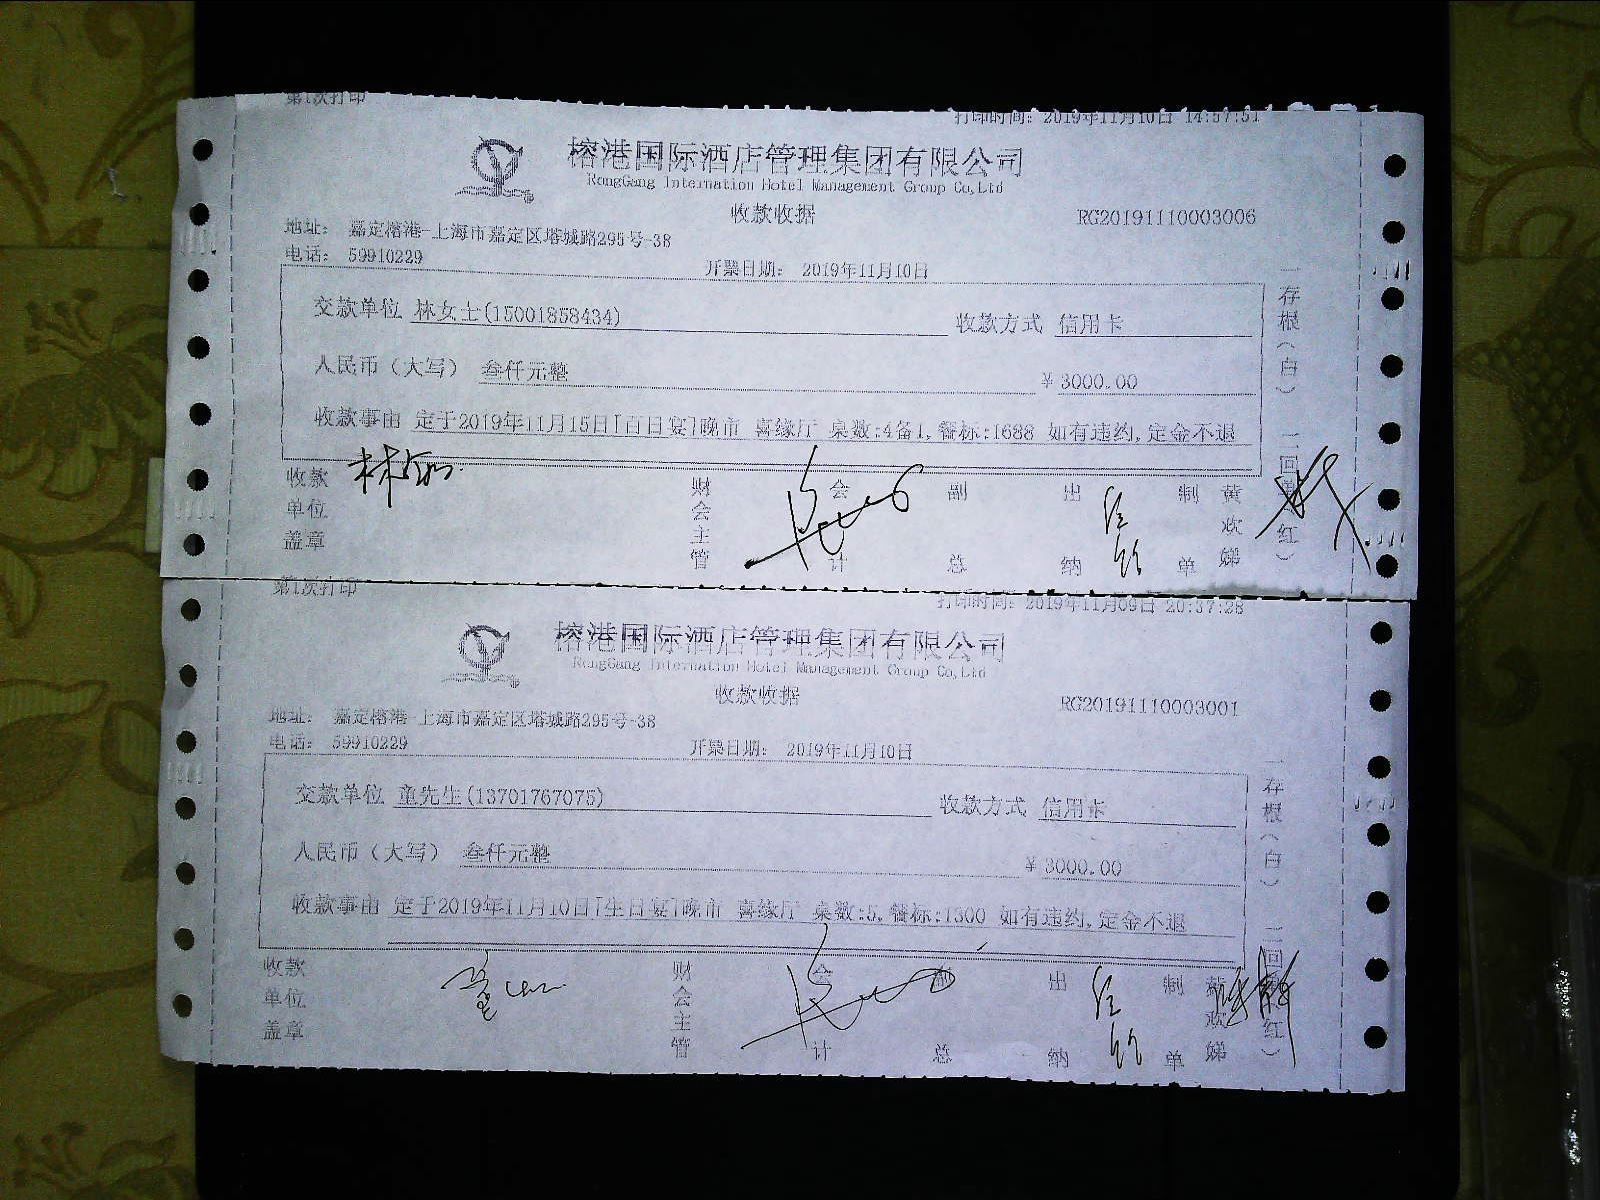 第1次打印
打印时间: 2019年11月10日 14:57:51
榕港国际酒店管理集团有限公司
RongGang Internation Hotel Management Group Co,Ltd
收款收据
RG20191110003006
地址: 嘉定榕港-上海市嘉定区塔城路295号-38
电话: 59910229
开票日期: 2019年11月10日
交款单位 林女士(15001858434) 收款方式 信用卡
人民币（大写） 叁仟元整 ¥ 3000.00
收款事由 定于2019年11月15日[百日宴]晚市 喜缘厅 桌数:4备1,餐标:1688 如有违约,定金不退
一存根（白） 二回单（红）
收款单位盖章 财会主管 会计 副总 出纳 制单 黄欢娣
第1次打印
打印时间: 2019年11月09日 20:37:28
榕港国际酒店管理集团有限公司
RongGang Internation Hotel Management Group Co,Ltd
收款收据
RG20191110003001
地址: 嘉定榕港-上海市嘉定区塔城路295号-38
电话: 59910229
开票日期: 2019年11月10日
交款单位 童先生(13701767075) 收款方式 信用卡
人民币（大写） 叁仟元整 ¥ 3000.00
收款事由 定于2019年11月10日[生日宴]晚市 喜缘厅 桌数:5,餐标:1300 如有违约,定金不退
一存根（白） 二回单（红）
收款单位盖章 财会主管 会计 副总 出纳 制单 黄欢娣